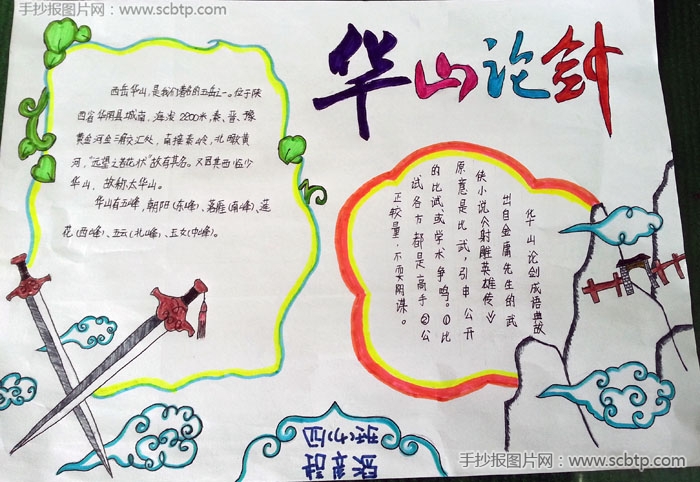 手抄报图片网：www.scbtp.com
华山论剑
西岳华山，是我们著名的五岳之一。位于陕
西省华阴县城南，海拔2200米，秦、晋、豫
黄金河金三角交汇处，南接秦岭，北瞰黄
河，"远望之若花状"故有其名。又因其西临少
华山，故称太华山。
华山有五峰，朝阳(东峰)、落雁(南峰)、莲
花(西峰)、五云(北峰)、玉女(中峰)。
华山论剑成语典故
出自金庸先生的武
侠小说《射雕英雄传》
原意是比武，引申 公开
的比试或学术争鸣。①比
试各方都是高手②公
正较量，不耍阴谋。
手抄报图片网：www.scbtp.com